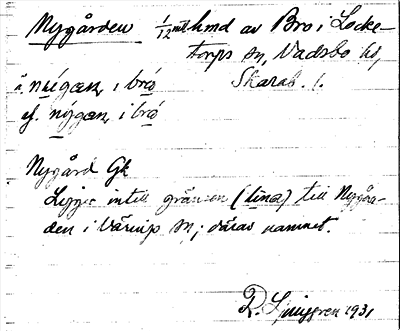 Nygården 1/12 mtl hmd av Bro i Locke-
torps sn, Vadsbo hd,
Skarab. l.
i bro
ef. i bro
Nygård Gk
Ligger intill gränsen (lina) till Nygår-
den i Värings sn; därav namnet.
D. Ljunggren 1931